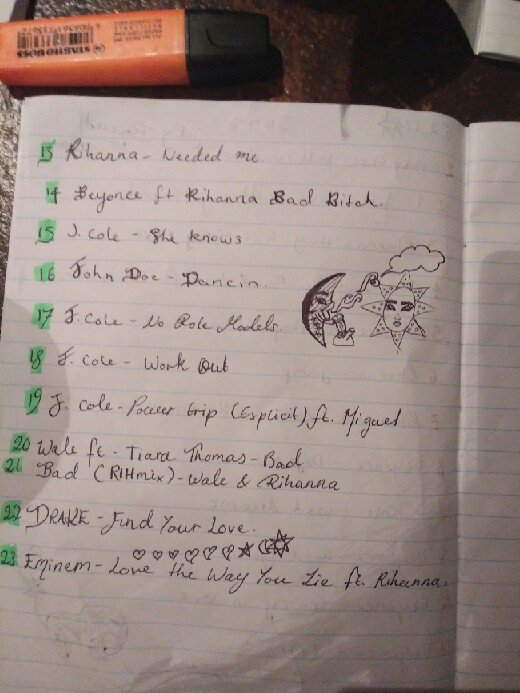 STABILO BOSS
13 Rihanna - Needed me.
14 Beyonce ft Rihanna Bad Bitch.
15 J. Cole - She knows
16 John Doe - Dancin.
17 J. Cole - No Role Models.
18 J. Cole - Work Out
19 J. Cole - Power trip (Explicit) ft. Miguel
20 Wale ft. Tiara Thomas - Bad
21 Bad (RIHmix) - Wale & Rihanna
22 DRAKE - Find Your Love.
23 Eminem - Love the Way You Lie ft. Rihanna.